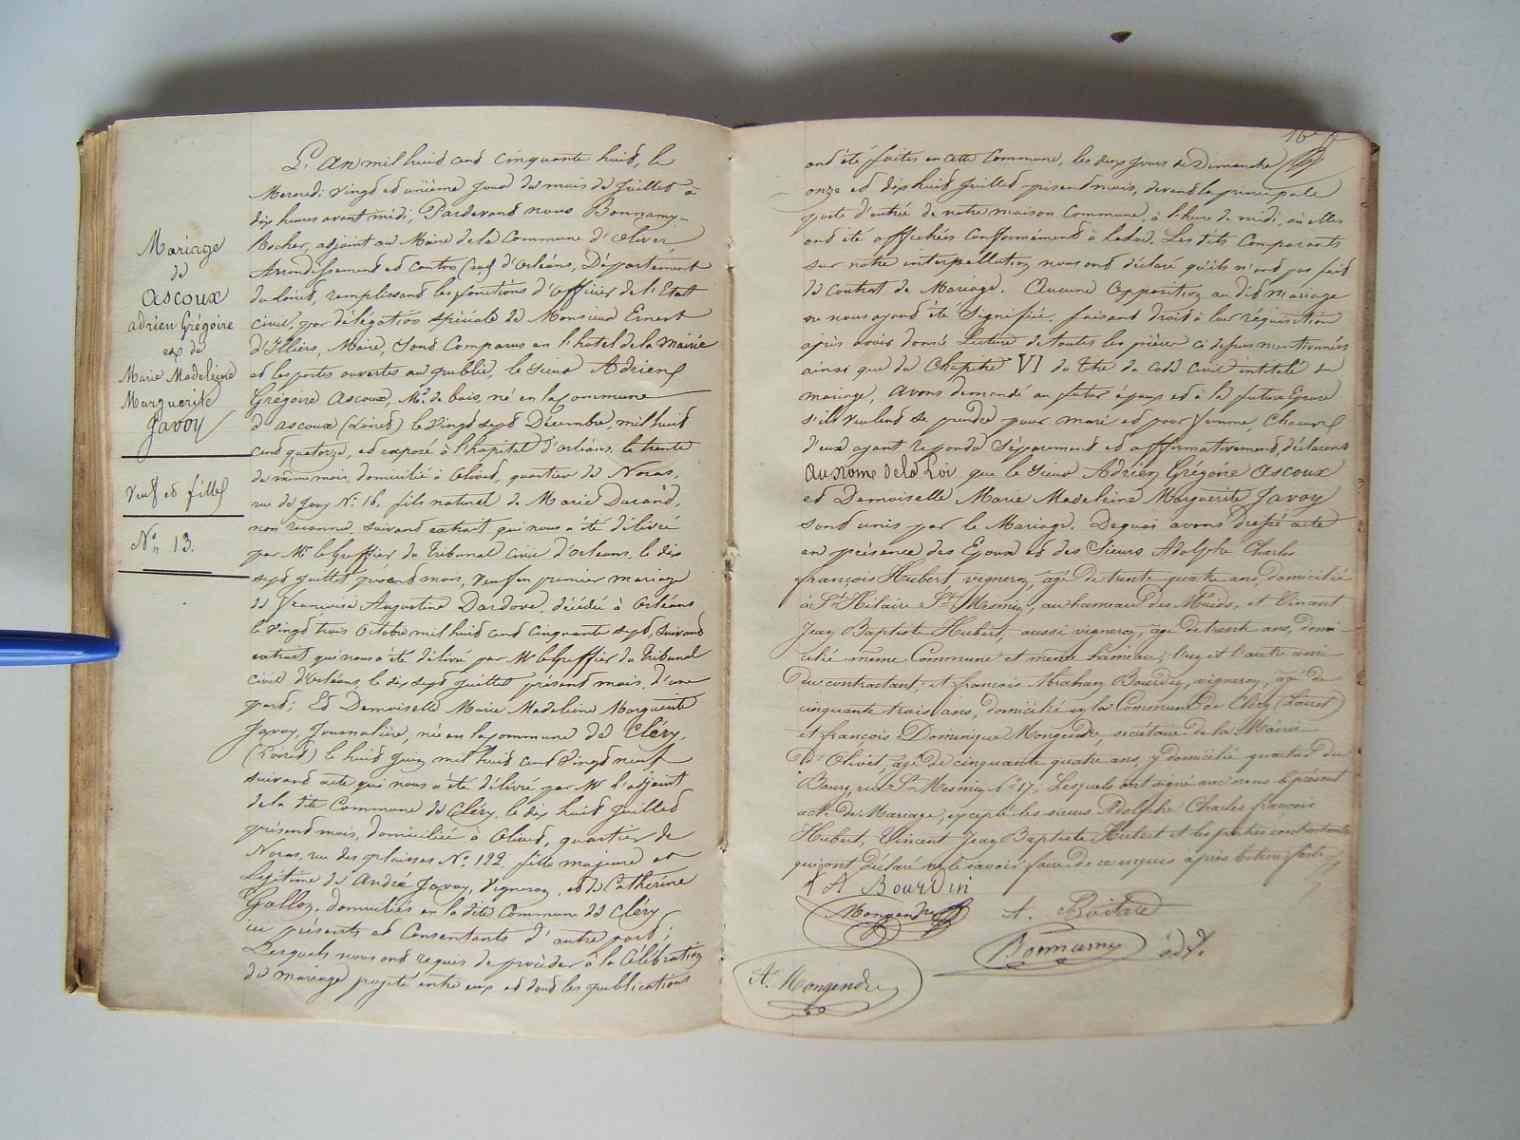 Mariage
de
Ascoux
adrien Grégoire
et de
Marie Madeleine
Marguerite
Javoy
Veuf et fille
N° 13.
L'an mil huit cent cinquante huit, le
Mercredi Vingt et unième jour du mois de Juillet à
dix heures avant midi, Pardevant nous Bonnamy-
Rocher, adjoint au Maire de la Commune d'Olivet,
Arrondissement et Canton sud d'Orléans, Département
du Loiret, remplissant les fonctions d'officier de l'Etat
civil, par délégation spéciale de Monsieur Ernest
d'Illiers, Maire, sont Comparus en l'hôtel de la mairie
et les portes ouvertes au public, le sieur Adrien
Grégoire Ascoux, Md. de bois, né en la commune
d'ascoux (Loiret) le vingt sept Décembre, mil huit
cent quatorze, et exposé à l'hôpital d'orléans, le trente
du même mois, domicilié à Olivet, quartier de Noras,
rue du N° 16, fils naturel de Marie Durand,
non reconnu suivant extrait qui nous a été délivré
par Mr. le Greffier du Tribunal civil d'Orléans, le dix
sept juillet présent mois, Veuf en premier mariage
de Françoise Augustine Dardove, décédée à Orléans
le vingt trois Octobre mil huit cent cinquante sept, suivant
extrait qui nous a été délivré par Mr le Greffier du Tribunal
civil d'Orléans, le dix sept juillet présent mois, d'une
part; Et Demoiselle Marie Madeleine Marguerite
Javoy, Journalière, née en la commune de Cléry,
(Loiret) le huit Juin mil huit cent Vingt neuf
suivant acte qui nous a été délivré par Mr l'adjoint
de la dite Commune de Cléry, le dix huit juillet
présent mois, domiciliée à Olivet, quartier de
Noras, rue des plaisses N° 122, fille majeure et
légitime de André Javoy, Vigneron, et de Catherine
Gallon, domiciliés en la dite Commune de Cléry
ici présents et Consentants d'autre part;
Lesquels nous ont requis de procéder à la Célébration
du mariage projeté entre eux et dont les publications
16
ont été faites en cette Commune, les deux jours de Dimanche
onze et dix huit Juillet présent mois, devant la principale
porte d'entrée de notre maison Commune, à l'heure de midi, où elles
ont été affichées Conformément à la loi. Les dits Comparants
sur notre interpellation nous ont déclaré qu'ils n'ont pas fait
de Contrat de Mariage. Aucune Opposition au dit mariage
ne nous ayant été signifiée, faisant droit à leur réquisition
après avoir donné Lecture de toutes les pièces ci dessus mentionnées
ainsi que du Chapitre VI du titre du Code Civil intitulé du
mariage, avons demandé au futur époux et à la future épouse
s'ils veulent se prendre pour mari et pour femme, Chacun
d'eux ayant répondu séparément et affirmativement, déclarons
au nom de la Loi que le sieur Adrien Grégoire Ascoux
et Demoiselle Marie Madeleine Marguerite Javoy
sont unis par le Mariage. De quoi avons dressé acte
en présence des Epoux et des Sieurs Adolphe Charles
françois Hubert vigneron, âgé de trente quatre ans, domicilié
à St. Hilaire St. Mesmin, au hameau des Muids, et Vincent
Jean Baptiste Hubert, aussi vigneron, âgé de trente ans, domi-
cilié même Commune et même hameau; l'un et l'autre amis
du contractant, et françois Abraham Bourdin, vigneron, âgé de
cinquante trois ans, domicilié en la Commune de Cléry (Loiret)
et françois Dominique Mongendre, secrétaire de la Mairie
d'Olivet, âgé de cinquante quatre ans, y domicilié quartier du
Bourg, rue St. Mesmin N° 17, Lesquels ont signé avec nous le présent
acte de Mariage, excepté les sieurs Adolphe Charles françois
Hubert, Vincent Jean Baptiste Hubert et les parties contractantes
qui ont déclaré ne le savoir faire de ce requis après lecture faite
f A Bourdin
Mongendre
A.
Bonnamy adj.
A. Mongendre